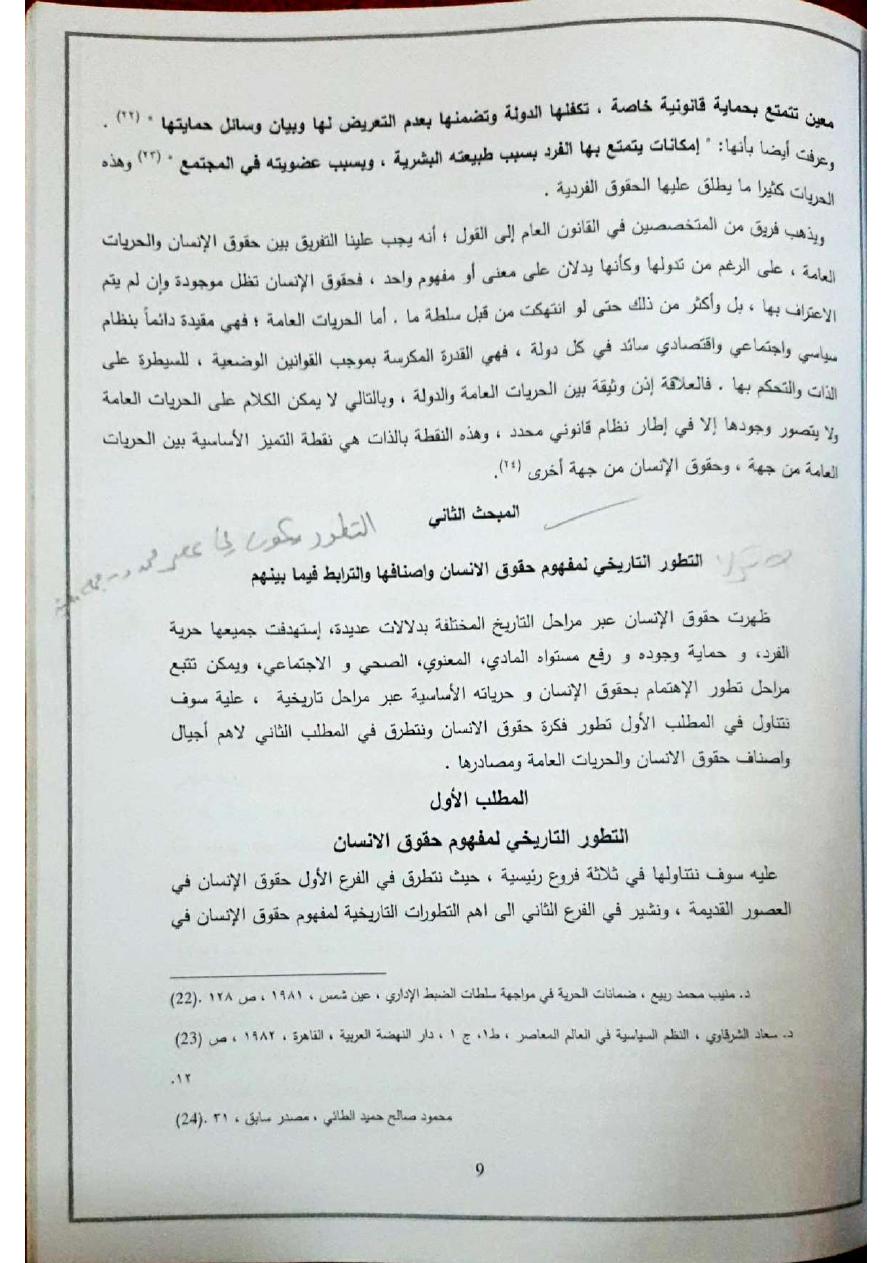 معين تتمتع بحماية قانونية خاصة ، تكفلها الدولة وتضمنها بعدم التعريض لها وبيان وسائل حمايتها " (٢٢) .
وعرفت أيضا بأنها: " إمكانات يتمتع بها الفرد بسبب طبيعته البشرية ، وبسبب عضويته في المجتمع " (٢٣) وهذه
الحريات كثيرا ما يطلق عليها الحقوق الفردية .
ويذهب فريق من المتخصصين في القانون العام إلى القول ؛ أنه يجب علينا التفريق بين حقوق الإنسان والحريات
العامة ، على الرغم من تدولها وكأنها يدلان على معنى أو مفهوم واحد ، فحقوق الإنسان تظل موجودة وإن لم يتم
الاعتراف بها ، بل وأكثر من ذلك حتى لو انتهكت من قبل سلطة ما . أما الحريات العامة ؛ فهي مقيدة دائماً بنظام
سياسي واجتماعي واقتصادي سائد في كل دولة ، فهي القدرة المكرسة بموجب القوانين الوضعية ، للسيطرة على
الذات والتحكم بها . فالعلاقة إذن وثيقة بين الحريات العامة والدولة ، وبالتالي لا يمكن الكلام على الحريات العامة
ولا يتصور وجودها إلا في إطار نظام قانوني محدد ، وهذه النقطة بالذات هي نقطة التميز الأساسية بين الحريات
العامة من جهة ، وحقوق الإنسان من جهة أخرى (٢٤).
المبحث الثاني
التطور
التطور التاريخي لمفهوم حقوق الانسان واصنافها والترابط فيما بينهم
ظهرت حقوق الإنسان عبر مراحل التاريخ المختلفة بدلالات عديدة، إستهدفت جميعها حرية
الفرد، و حماية وجوده و رفع مستواه المادي، المعنوي، الصحي و الاجتماعي، ويمكن تتبع
مراحل تطور الإهتمام بحقوق الإنسان و حرياته الأساسية عبر مراحل تاريخية ، علية سوف
نتناول في المطلب الأول تطور فكرة حقوق الانسان ونتطرق في المطلب الثاني لاهم أجيال
واصناف حقوق الانسان والحريات العامة ومصادرها .
المطلب الأول
التطور التاريخي لمفهوم حقوق الانسان
عليه سوف نتناولها في ثلاثة فروع رئيسية ، حيث نتطرق في الفرع الأول حقوق الإنسان في
العصور القديمة ، ونشير في الفرع الثاني الى اهم التطورات التاريخية لمفهوم حقوق الإنسان في
د. منيب محمد ربيع ، ضمانات الحرية في مواجهة سلطات الضبط الإداري ، عين شمس ، ١٩٨١ ، ص ١٢٨ .(22)
د. سعاد الشرقاوي ، النظم السياسية في العالم المعاصر ، ط١، ج ١ ، دار النهضة العربية ، القاهرة ، ١٩٨٢ ، ص (23)
١٢.
محمود صالح حميد الطائي ، مصدر سابق ، ٣١ .(24)
9